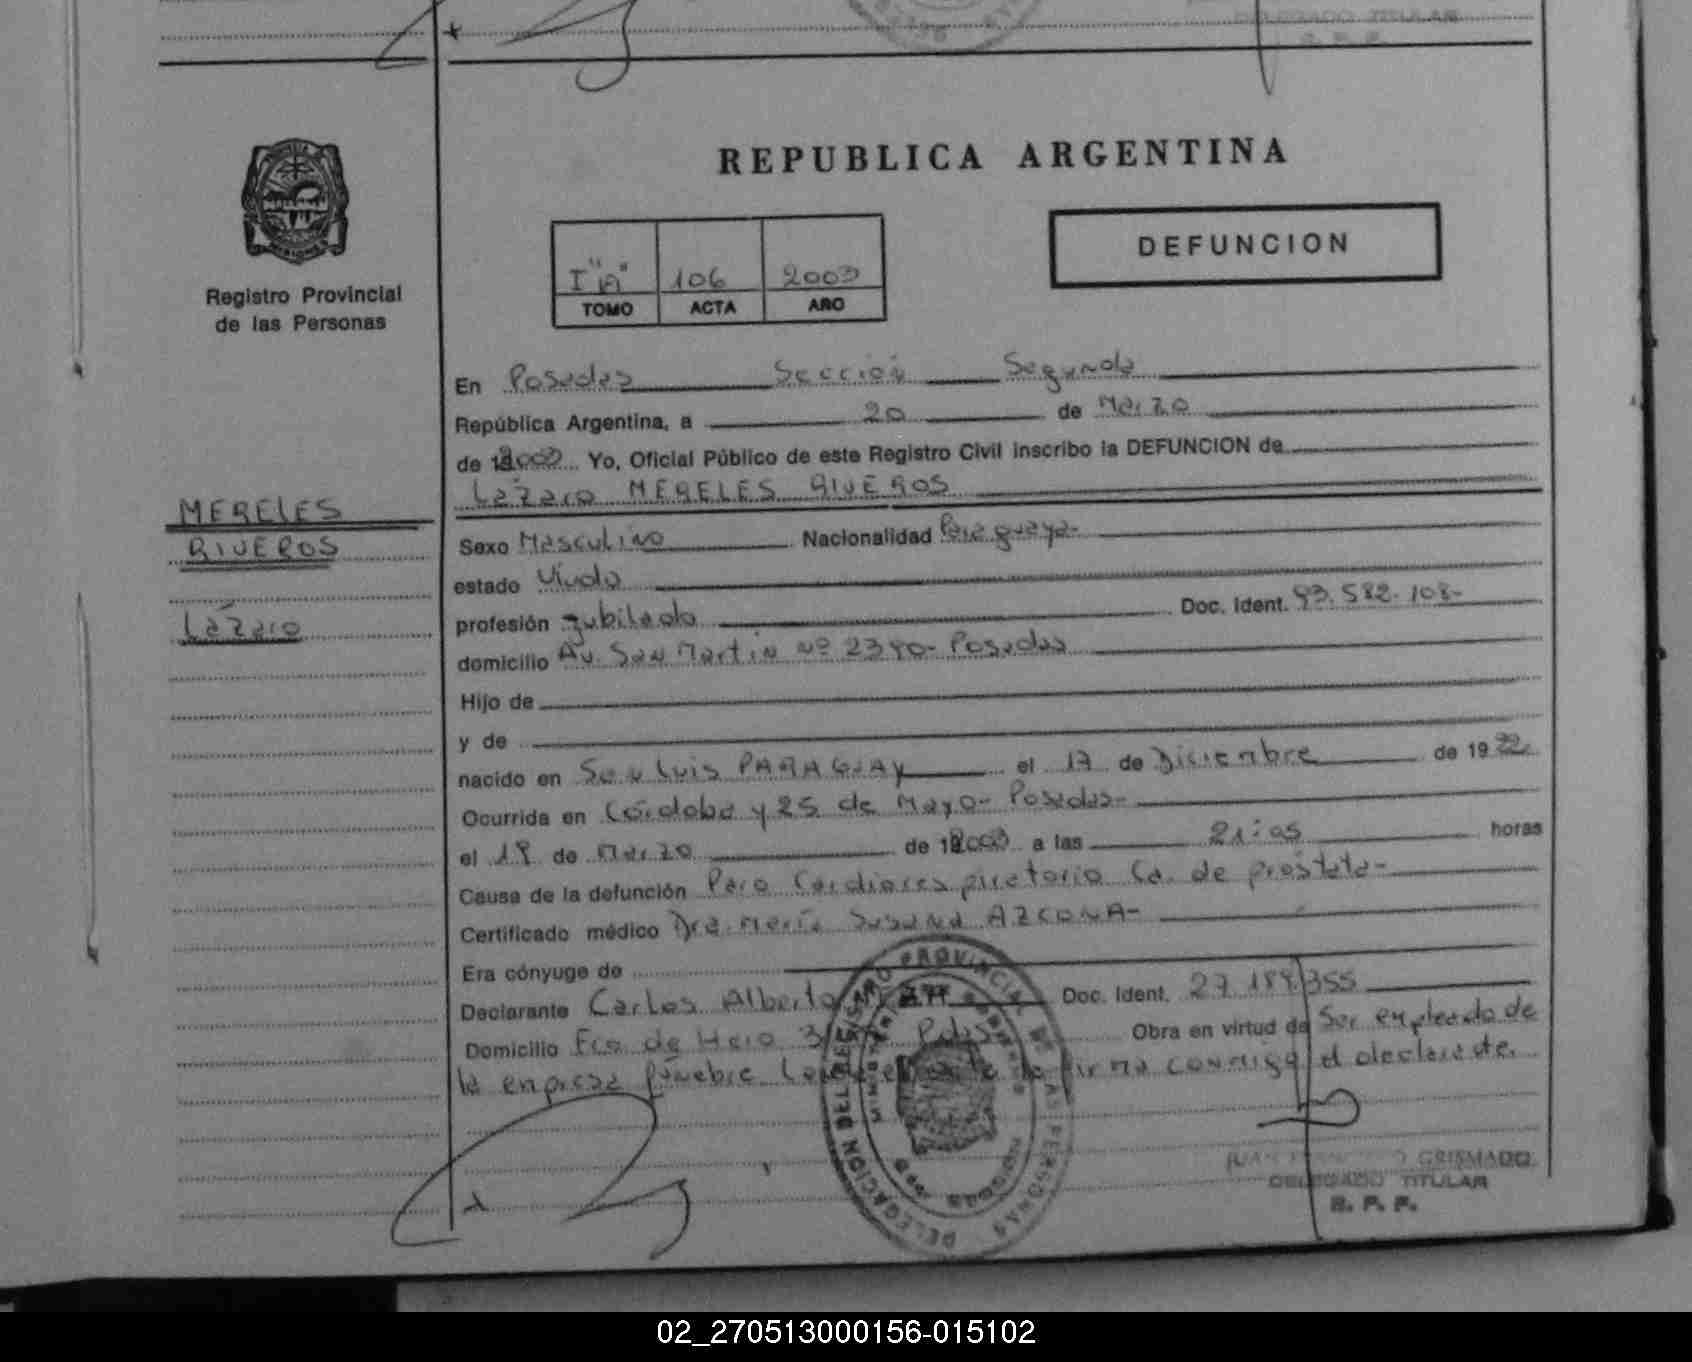 DELEGADO TITULAR
R. P. P.
REPUBLICA ARGENTINA
DEFUNCION
I "A" 106 2003
TOMO ACTA AÑO
Registro Provincial
de las Personas
En Posadas Sección Segunda
República Argentina, a 20 de Marzo
de 2003 Yo, Oficial Público de este Registro Civil inscribo la DEFUNCION de
Lázaro MERELES RIVEROS
MERELES
RIVEROS
Lázaro
Sexo Masculino Nacionalidad Paraguaya-
estado Viudo
profesión Jubilado Doc. Ident. 93.582.108-
domicilio Av. San Martín Nº 2390- Posadas
Hijo de
y de
nacido en San Luis PARAGUAY el 17 de Diciembre de 1922
Ocurrida en Córdoba y 25 de Mayo- Posadas-
el 19 de Marzo de 2003 a las 21:05 horas
Causa de la defunción Paro Cardiorespiratorio Ca. de próstata-
Certificado médico Dra. María Susana AZCONA-
Era cónyuge de
Declarante Carlos Alberto Doc. Ident. 27.189.355
Domicilio Fco de Haro Pdas Obra en virtud de Ser empleado de
la empresa fúnebre firma conmigo el declarante.
DELEGACION
PROVINCIAL DE LAS PERSONAS
JUAN FRANCISCO GRISMADO
DELEGADO TITULAR
R. P. P.
02_270513000156-015102